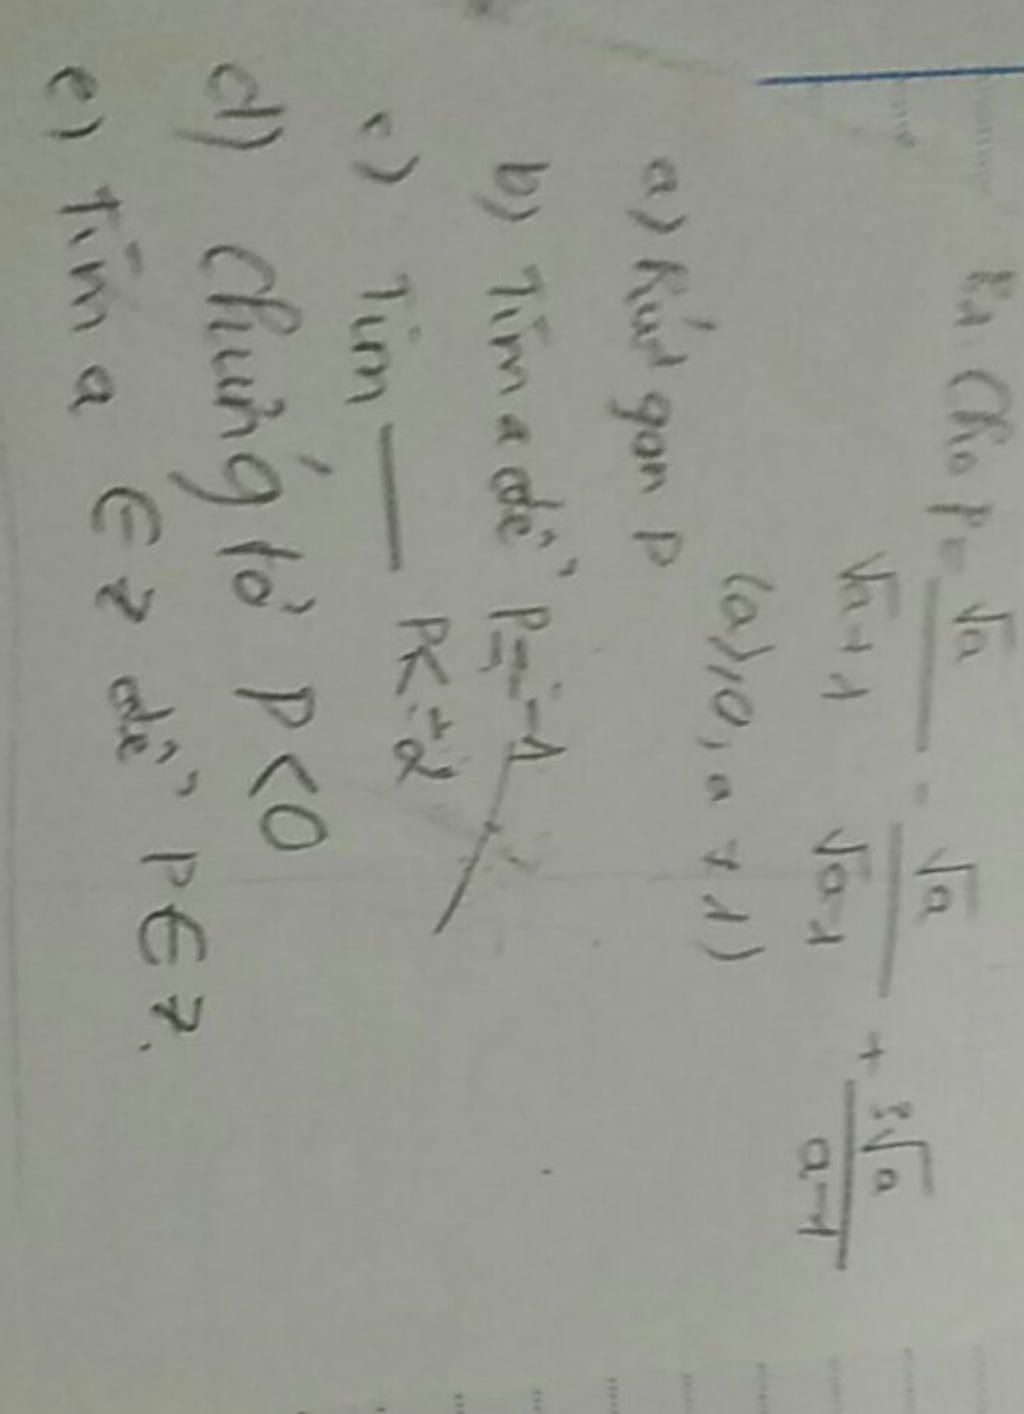 Cho P = √a / √a+1 - √a / √a-1 + 3√a / a-1
(a⩾0, a ≠ 1)
a) Rút gọn P
b) Tìm a để P = -1
c) Tìm — P<-2
d) Chứng tỏ P<0
e) Tìm a ∈ Z để P ∈ Z.